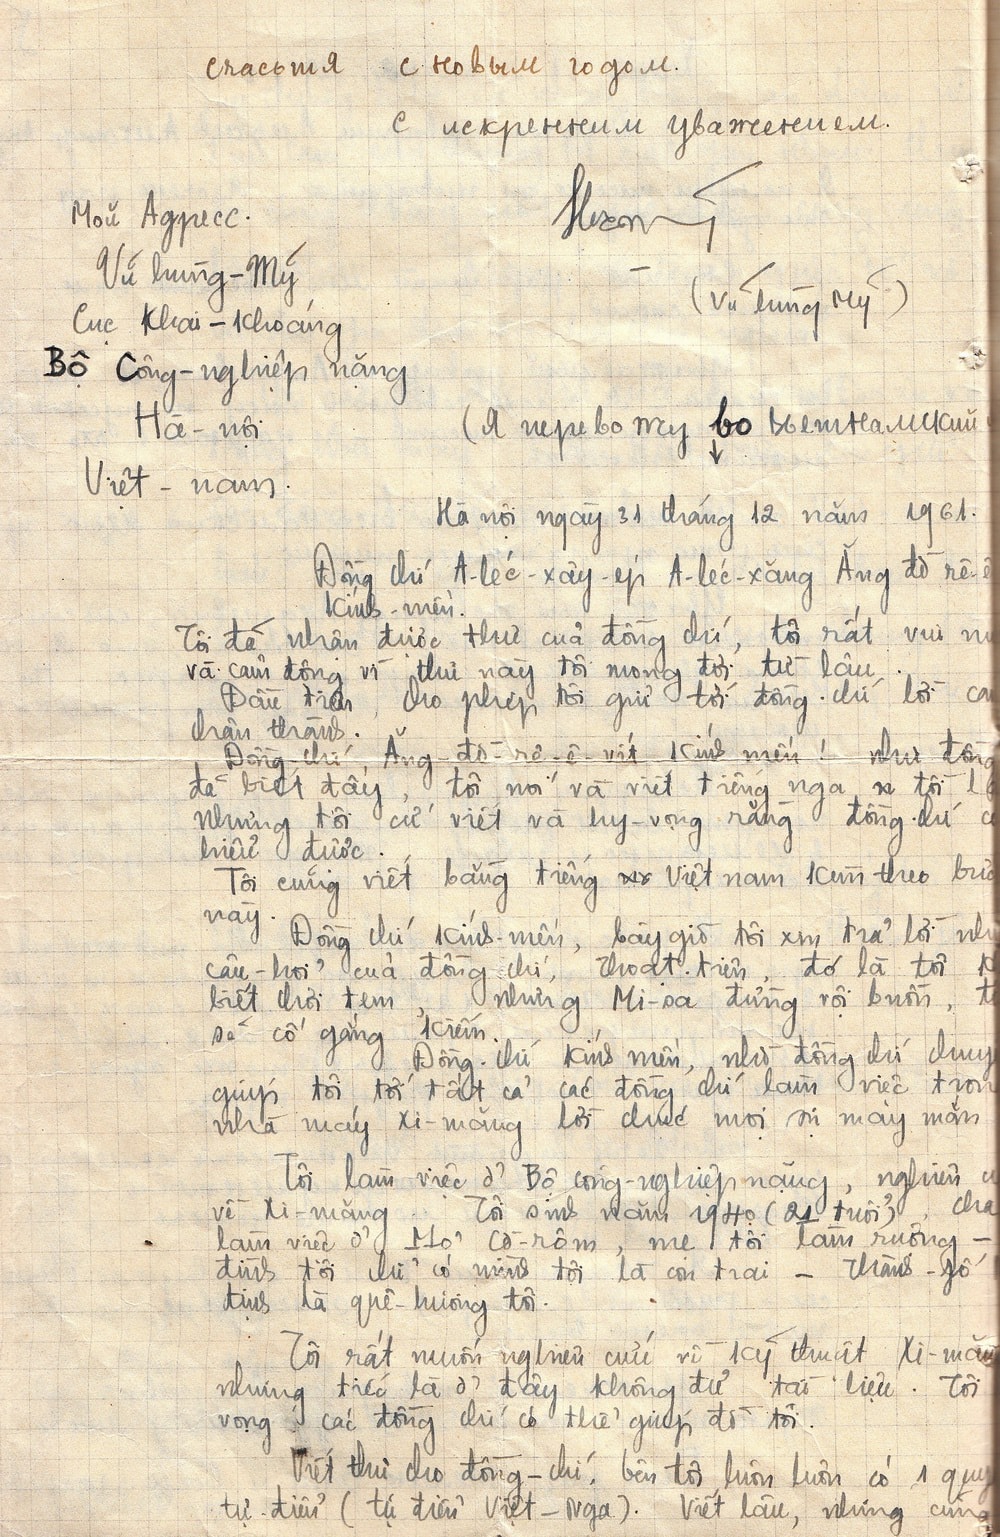 счастья с новым годом.
с искренним уважением.
Мой Адресс.
Vũ hùng-Mỹ
(Vũ hùng Mỹ)
Cục Khai-Khoáng
Bộ Công-nghiệp nặng
Hà-nội
(Я перевожу во вьетнамский
Việt-nam.
Hà nội ngày 31 tháng 12 năm 1961.
Đồng chí A-léc-xây-ép A-léc-xăng Ăng đờ rê-ê
kính-mến.
Tôi đã nhận được thư của đồng chí, tôi rất vui
và cảm động vì thư này tôi mong đợi từ lâu.
Đầu tiên, cho phép tôi gửi tới đồng chí lời
chân thành.
Đồng-chí Ăng-đờ-rê-ê-vít kính mến! như đồng
đã biết đấy, tôi nói và viết tiếng nga tồi
nhưng tôi cứ viết và hy-vọng rằng đồng-chí
hiểu được.
Tôi cũng viết bằng tiếng Việt nam kèm theo
này.
Đồng chí kính-mến, bây giờ tôi xin trả lời
câu-hỏi của đồng chí, thoạt.tiên, đó là tôi
biết chơi tem, nhưng Mi-sa đừng vội buồn,
sẽ cố gắng kiếm.
Đồng-chí kính mến, nhờ đồng chí chuyển
giúp tôi tới tất cả các đồng chí làm việc trong
nhà máy xi-măng lời chúc mọi sự may mắn
Tôi làm việc ở Bộ công-nghiệp nặng, nghiên
về xi-măng. Tôi sinh năm 1940 (21 tuổi), cha
làm việc ở Mỏ Cờ-rôm, mẹ tôi làm ruộng-
đình tôi chỉ có mình tôi là con trai - Thành-phố
định là quê-hương tôi.
Tôi rất muốn nghiên cứu về kỹ thuật Xi-măng
nhưng tiếc là ở đây không đủ tài liệu. Tôi
vọng: các đồng chí có thể giúp đỡ tôi.
Viết thư cho đồng-chí, bên tôi luôn luôn có 1 quyển
tự-điển (tự điển Việt-Nga). Viết lâu, nhưng cũng